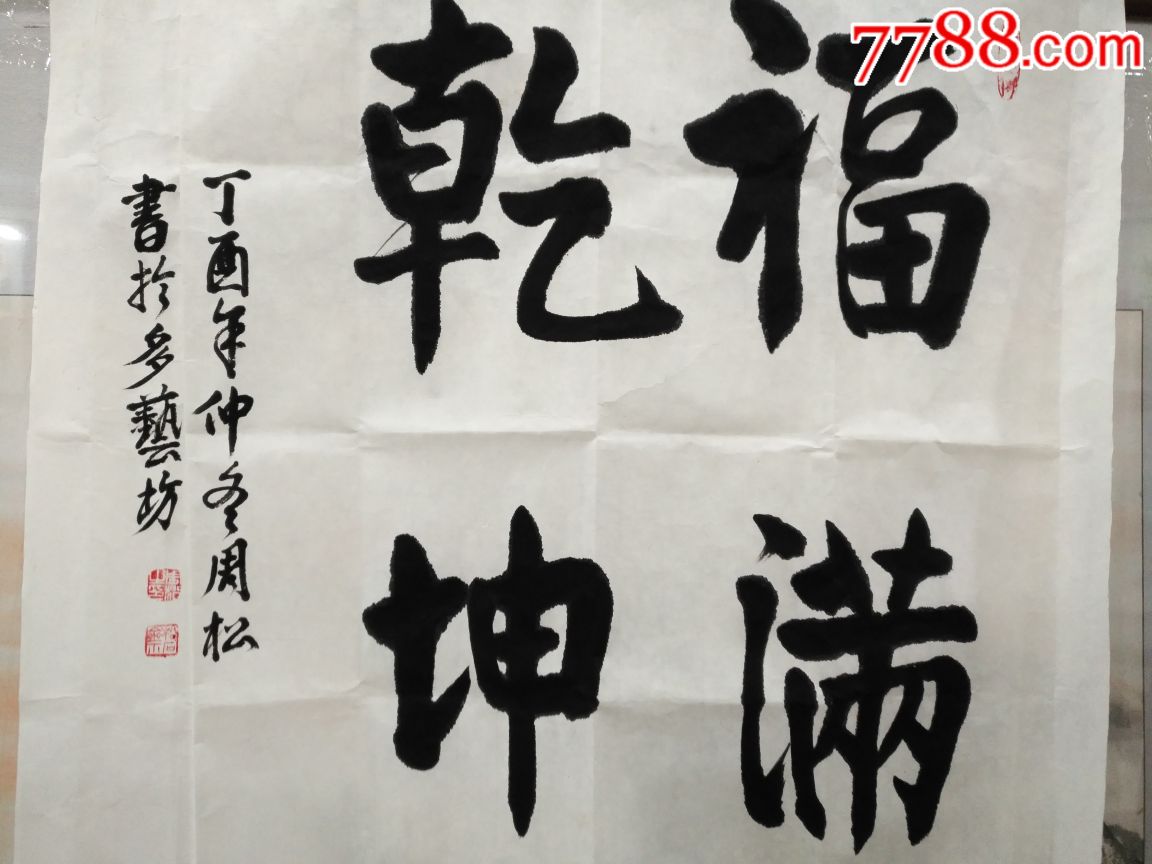 福滿
乾坤
丁酉年仲冬周松
書於多藝坊
7788.com